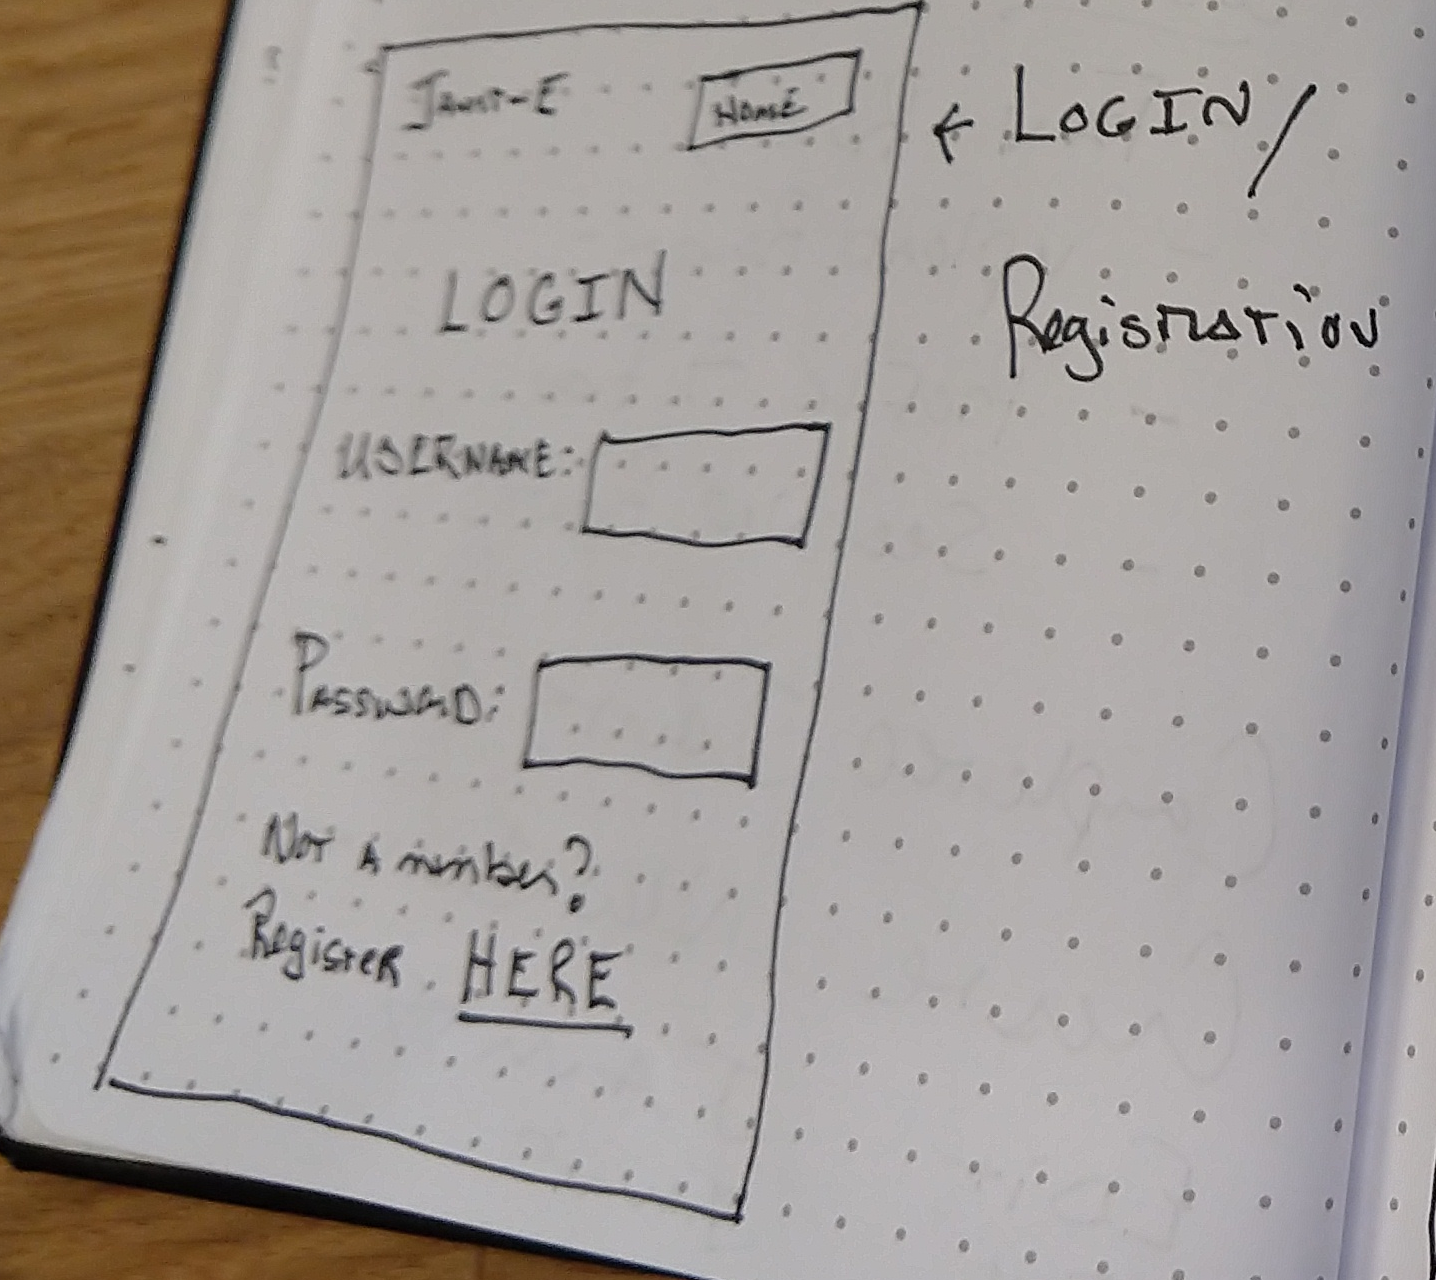 HOME
← LOGIN/
Registration
LOGIN
USERNAME:
PASSWORD:
Not A member?
Register HERE